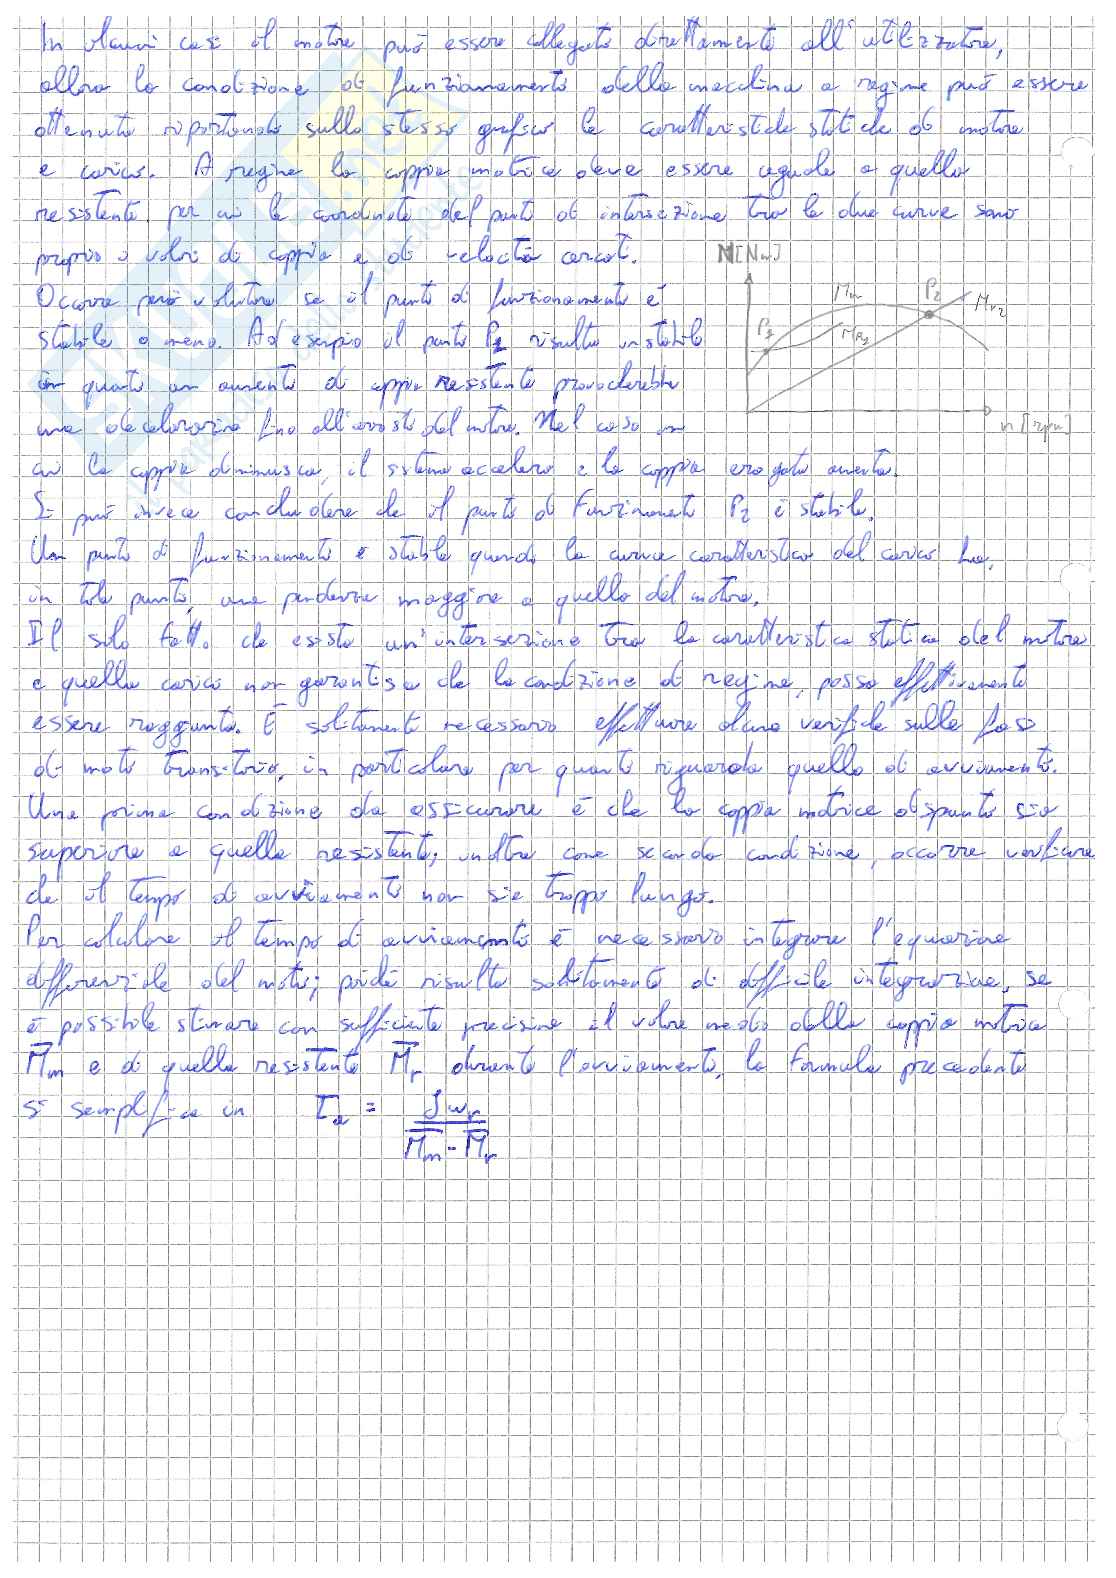 In alcuni casi il motore può essere collegato direttamente all'utilizzatore,
allora la condizione di funzionamento della macchina a regime può essere
ottenuta riportando sullo stesso grafico le caratteristiche statiche di motore
e carico. A regime la coppia motrice deve essere uguale a quella
resistente, per cui le coordinate del punto di intersezione tra le due curve sono
proprio i valori di coppia e di velocità cercati.
M[Nm]
Occorre però valutare se il punto di funzionamento è
stabile o meno. Ad esempio il punto P1 risulta instabile
in quanto un aumento di coppia resistente provocherebbe
una decelerazione fino all'arresto del motore. Nel caso in
P1 Mm MR1 P2 Mr2
n [rpm]
cui la coppia diminuisca, il sistema accelera e la coppia erogata aumenta.
Si può invece concludere che il punto di funzionamento P2 è stabile.
Un punto di funzionamento è stabile quando la curva caratteristica del carico ha,
in tale punto, una pendenza maggiore a quella del motore.
Il solo fatto che esista un'intersezione tra la caratteristica statica del motore
e quella carico non garantisce che la condizione di regime, possa effettivamente
essere raggiunta. È solitamente necessario effettuare alcune verifiche sulla fase
di moto transitorio, in particolare per quanto riguarda quello di avviamento.
Una prima condizione da assicurare è che la coppia motrice di spunto sia
superiore a quella resistente; inoltre come seconda condizione, occorre verificare
che il tempo di avviamento non sia troppo lungo.
Per calcolare il tempo di avviamento è necessario integrare l'equazione
differenziale del moto; poiché risulta solitamente di difficile integrazione, se
è possibile stimare con sufficiente precisione il valore medio della coppia motrice
M̅m e di quella resistente M̅r durante l'avviamento, la formula precedente
si semplifica in Ta = J ωr / (M̅m - M̅r)